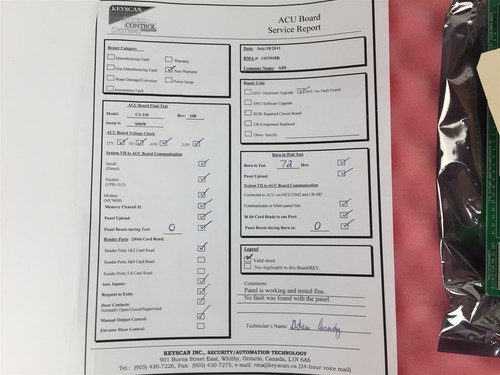 KEYSCAN
ACCESS
CONTROL
SYSTEMS
ACU Board
Service Report
Repair Category:
Manufacturing Fault
Warranty
Non Manufacturing Fault
Non Warranty
Water Damage/Corrosion
Power Surge
Intermittent Fault
Date: July/18/2011
RMA #: 110701RB
Company Name: ADI
Repair Code
HDU: Hardware Upgrade
NFF: No Fault Found
SWU: Software Upgrade
RCB: Repaired Circuit Board
CR: Component Replaced
Other: Specify
ACU Board Final Test
Model: CA 220
Rev: 10B
Serial #: X8698
ACU Board Voltage Check
12V
5V
-10V
3.6V
System VII to ACU Board Communication
Serial
(Direct)
Parallel
(CPB-10/2)
Modem
(MC9600)
Memory Cleared #1
Panel Upload:
Panel Resets during Test: 0
Reader Ports (36bit Card Read)
Reader Ports 1&2 Card Read:
Reader Ports 3&4 Card Read:
Reader Ports 5-8 Card Read:
Aux. Inputs:
Request to Exits:
Door Contacts:
Normally Open/Closed/Supervised:
Manual Output Control:
Elevator Floor Control:
Burn in Wall Test
Burn in Test 72 Hrs:
Panel Upload:
System VII to ACU Board Communication
Connected to ACU via NETCOM2 and CB-485
Communicates in Multi-panel Site:
36 bit Card Reads to one Port:
Panel Resets during Burn in: 0
Legend
Valid check
Not Applicable to this Board/REV.
Comments:
Panel is working and tested fine.
No fault was found with the panel.
Technician's Name:
KEYSCAN INC., SECURITY/AUTOMATION TECHNOLOGY
901 Burns Street East, Whitby, Ontario, Canada, L1N 6A6
Tel.: (905) 430-7226, Fax: (905) 430-7275, e-mail: rma@keyscan.ca (24-hour voice mail)